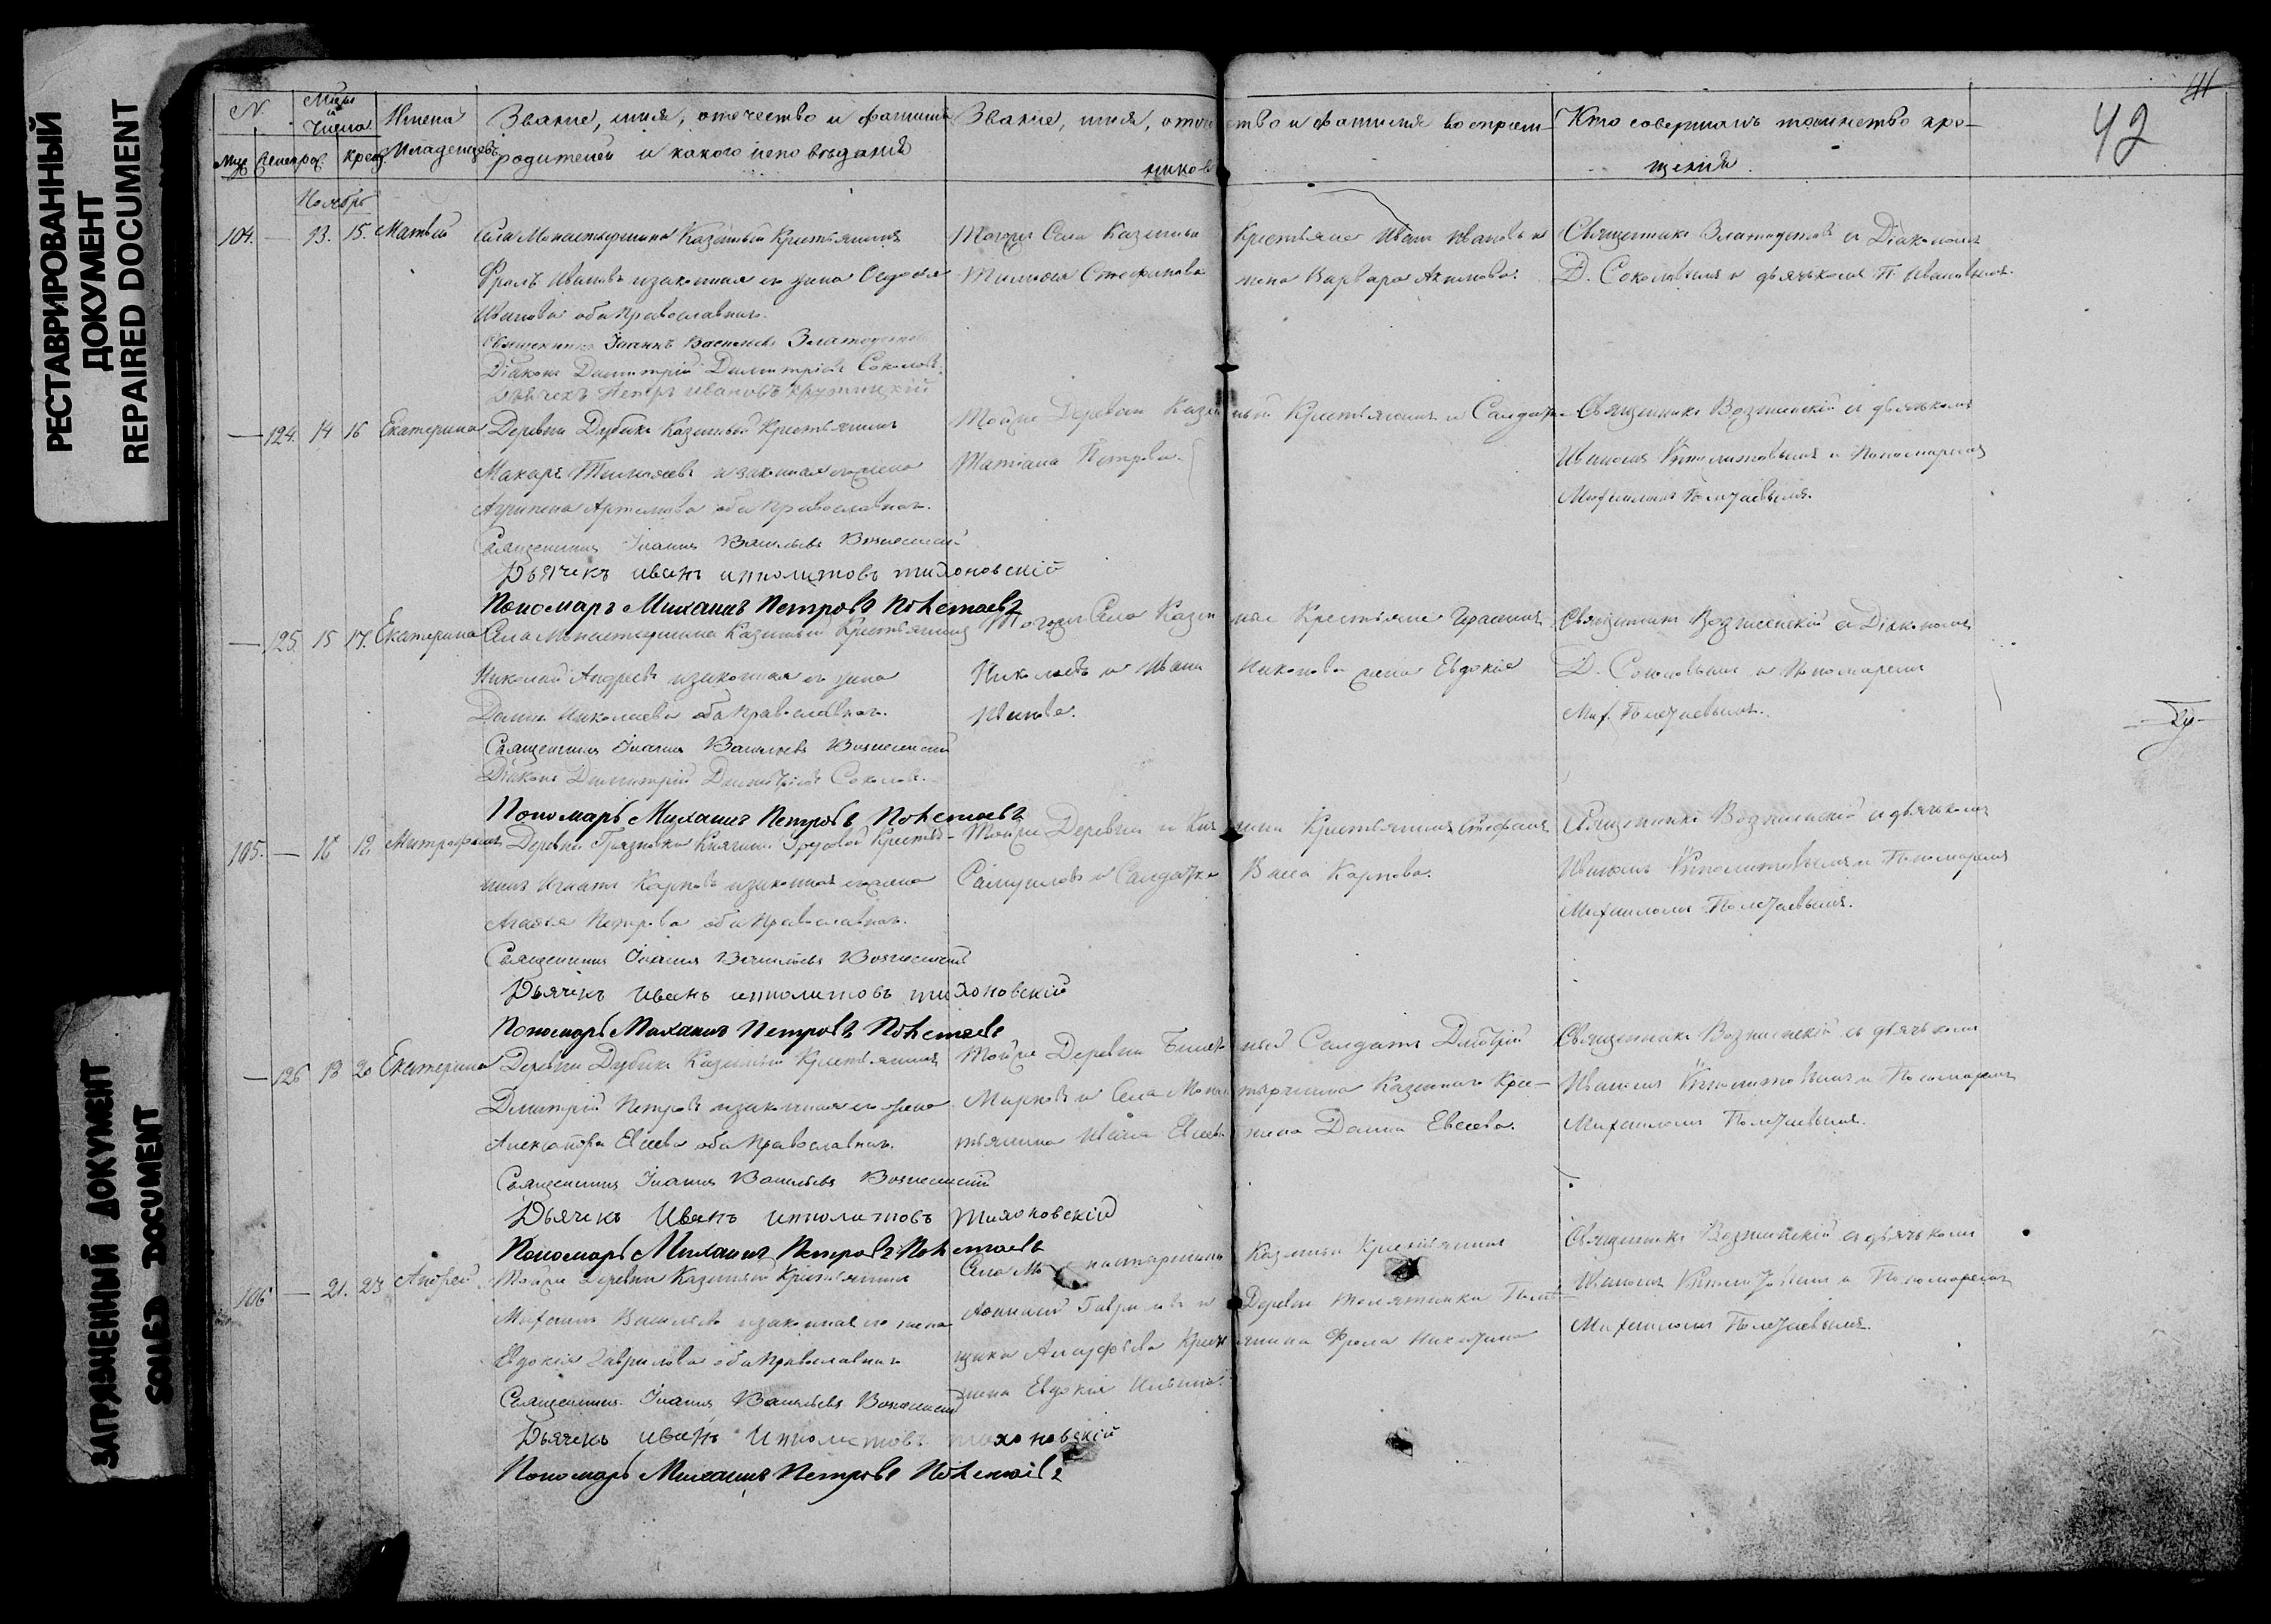 РЕСТАВРИРОВАННЫЙ
ДОКУМЕНТ
REPAIRED DOCUMENT
ЗАГРЯЗНЕННЫЙ ДОКУМЕНТ
SOILED DOCUMENT
41
42
N.
Числа
Имена
Младенцевъ
Званіе, имя, отечество и фамилія
родителей и какого исповѣданія
Званіе, имя, отечество и фамилія воспріем-
никовъ
Кто совершалъ таинство кре-
щенія.
Ноябрь
104. — 13. 15. Матвей
Села Монастырщина Казенный Крестьянинъ
Фролъ Ивановъ и законная его жена
Иванова оба православные.
Священникъ Іоаннъ Васильевъ Златоустовъ
Діаконъ Димитрій Димитріевъ Соколовъ.
Дьячекъ Петръ Ивановъ
Тогоже Села Казенный Крестьянинъ Иванъ Ивановъ и
Стефанова жена Варвара Акимова.
Священникъ Златоустовъ съ Діакономъ
Д. Соколовымъ и дьячькомъ П. Ивановымъ.
— 124. 14 16 Екатерина
Деревни Дубики Казенный Крестьянинъ
Макаръ Тимофеевъ и законная его жена
Агрипена Артамова оба православные.
Священникъ Іоаннъ Васильевъ Вознесенскій
Дьячекъ иванъ ипполитовъ тихоновскій
Пономарь Михаилъ Петровъ Полетаевъ
Тойже Деревни Казенный Крестьянинъ и Салдатка
Татіана Петрова.
Священникъ Вознесенскій съ дьячькомъ
Иваномъ Ипполитовымъ и Пономаремъ
Михаиломъ Полетаевымъ.
— 125. 15 17. Екатерина
Села Монастырщина Казенный Крестьянинъ
Николай Андреевъ и законная его жена
Домна Николаева оба православные.
Священникъ Іоаннъ Васильевъ Вознесенскій
Діаконъ Димитрій Димитріевъ Соколовъ.
Пономарь Михаилъ Петровъ Полетаевъ
Тогоже Села Казенные Крестьяне Герасимъ
Николаевъ и Ивана Никонова жена Евдокія
Иванова.
Священникъ Вознесенскій съ Діакономъ
Д. Соколовымъ и Пономаремъ
Мих. Полетаевымъ.
105. — Митрофанъ
Деревни Грязновки Княгини Крестья-
нинъ Игнатъ Карповъ и законная его жена
Агафія Петрова оба православные.
Священникъ Іоаннъ Васильевъ Вознесенскій
Дьячекъ иванъ ипполитовъ тихоновскій
Пономарь Михаилъ Петровъ Полетаевъ
Тойже Деревни и Княгини Крестьянинъ Стефанъ
Самуиловъ и Салдатка Васса Карпова.
Священникъ Вознесенскій съ дьячькомъ
Иваномъ Ипполитовымъ и Пономаремъ
Михаиломъ Полетаевымъ.
— 126 18 20 Екатерина
Деревни Дубики Казенный Крестьянинъ
Димитрій Петровъ и законная его жена
Александра Евсеева оба православные.
Священникъ Іоаннъ Васильевъ Вознесенскій
Дьячекъ Иванъ ипполитовъ тихоновскій
Пономарь Михаилъ Петровъ Полетаевъ
Тойже Деревни Билетный Салдатъ Дмитрій
Марковъ и Села Монастырщина Казеннаго Кре-
стьянина Ивана Евсеева жена Домна Евсеева.
Священникъ Вознесенскій съ дьячькомъ
Иваномъ Ипполитовымъ и Пономаремъ
Михаиломъ Полетаевымъ.
106 — 21. 23 Андрей
Тойже Деревни Казенный Крестьянинъ
Михаилъ Васильевъ и законная его жена
Евдокія Гаврилова оба православные
Священникъ Іоаннъ Васильевъ Вознесенскій
Дьячекъ иванъ Ипполитовъ тихоновскій
Пономарь Михаилъ Петровъ Полетаевъ
Села Монастырщины Казенный Крестьянинъ
Гавриловъ и Деревни Телятинки
Крестьянина Фрола
жена Евдокія
Священникъ Вознесенскій съ дьячькомъ
Иваномъ Ипполитовымъ и Пономаремъ
Михаиломъ Полетаевымъ.